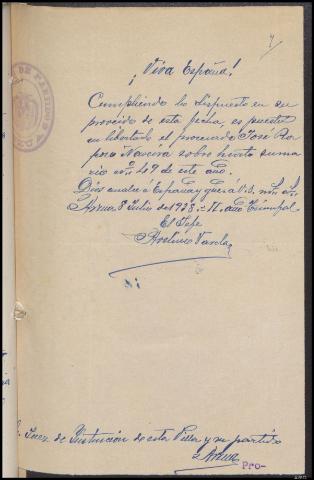 ¡Viva España!
Cumpliendo lo dispuesto en su
proveido de esta fecha es puesto
en libertad el procesado José Ra
poso Naveira sobre hurto suma
rio nº 49 de este año.
Dios salve á España y guar á V.S. ms. as.
Arzua 8 Julio de 1938.= II. año Triunfal
El Jefe
Avelino Varela
Sr. Juez de Instrucción de esta Villa y su partido
Arzua
Pro-